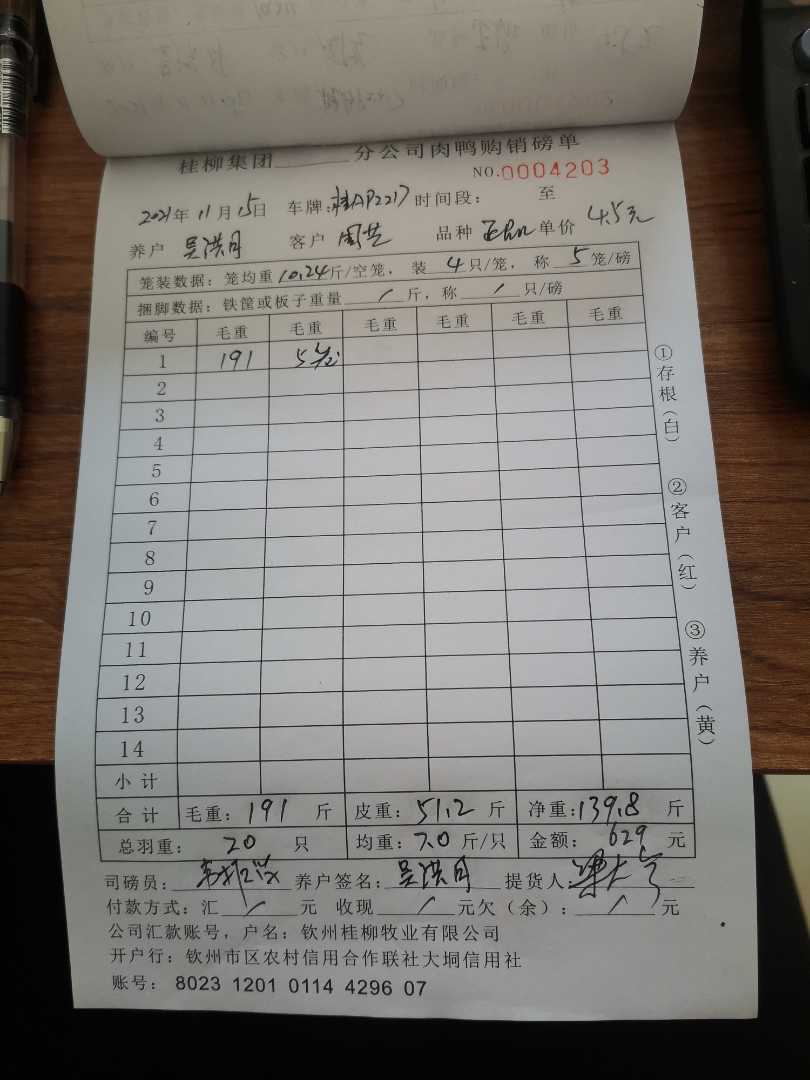 桂柳集团______分公司肉鸭购销磅单
NO.0004203
2021年11月15日 车牌:桂AP2217 时间段: 至
养户 吴洪月 客户 周芸 品种 单价 4.5元
笼装数据: 笼均重10.24斤/空笼, 装 4 只/笼, 称 5 笼/磅
捆脚数据: 铁筐或板子重量 / 斤, 称 / 只/磅
编号 毛重 毛重 毛重 毛重 毛重 毛重
1 191 5笼
2
3
4
5
6
7
8
9
10
11
12
13
14
小计
合计 毛重: 191 斤 皮重: 51.2 斤 净重: 139.8 斤
总羽重: 20 只 均重: 7.0 斤/只 金额: 629 元
司磅员: 养户签名: 吴洪月 提货人:
付款方式: 汇 / 元 收现 / 元欠(余): / 元
公司汇款账号, 户名: 钦州桂柳牧业有限公司
开户行: 钦州市区农村信用合作联社大垌信用社
账号: 8023 1201 0114 4296 07
①存根(白)
②客户(红)
③养户(黄)